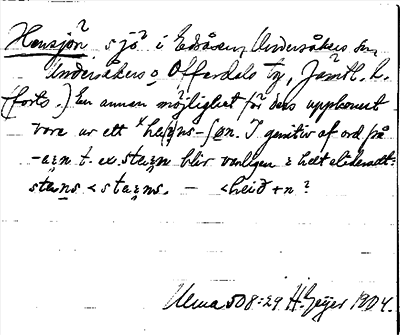 Hensjön, sjö i Edsåsen, Undersåkers sn,
Undersåkers o Offerdals tg, Jämtl. l.
(forts.) En annan möjlighet för dess uppkomst
vore av ett *hæi̯ns-ʃøn. I genitiv af ord på
-æi̯n t. ex. stæi̯n blir vanligen i helt
stæns < stæi̯ns. — < heið + n ?
Ulma 508:29. H. Geijer 1904.